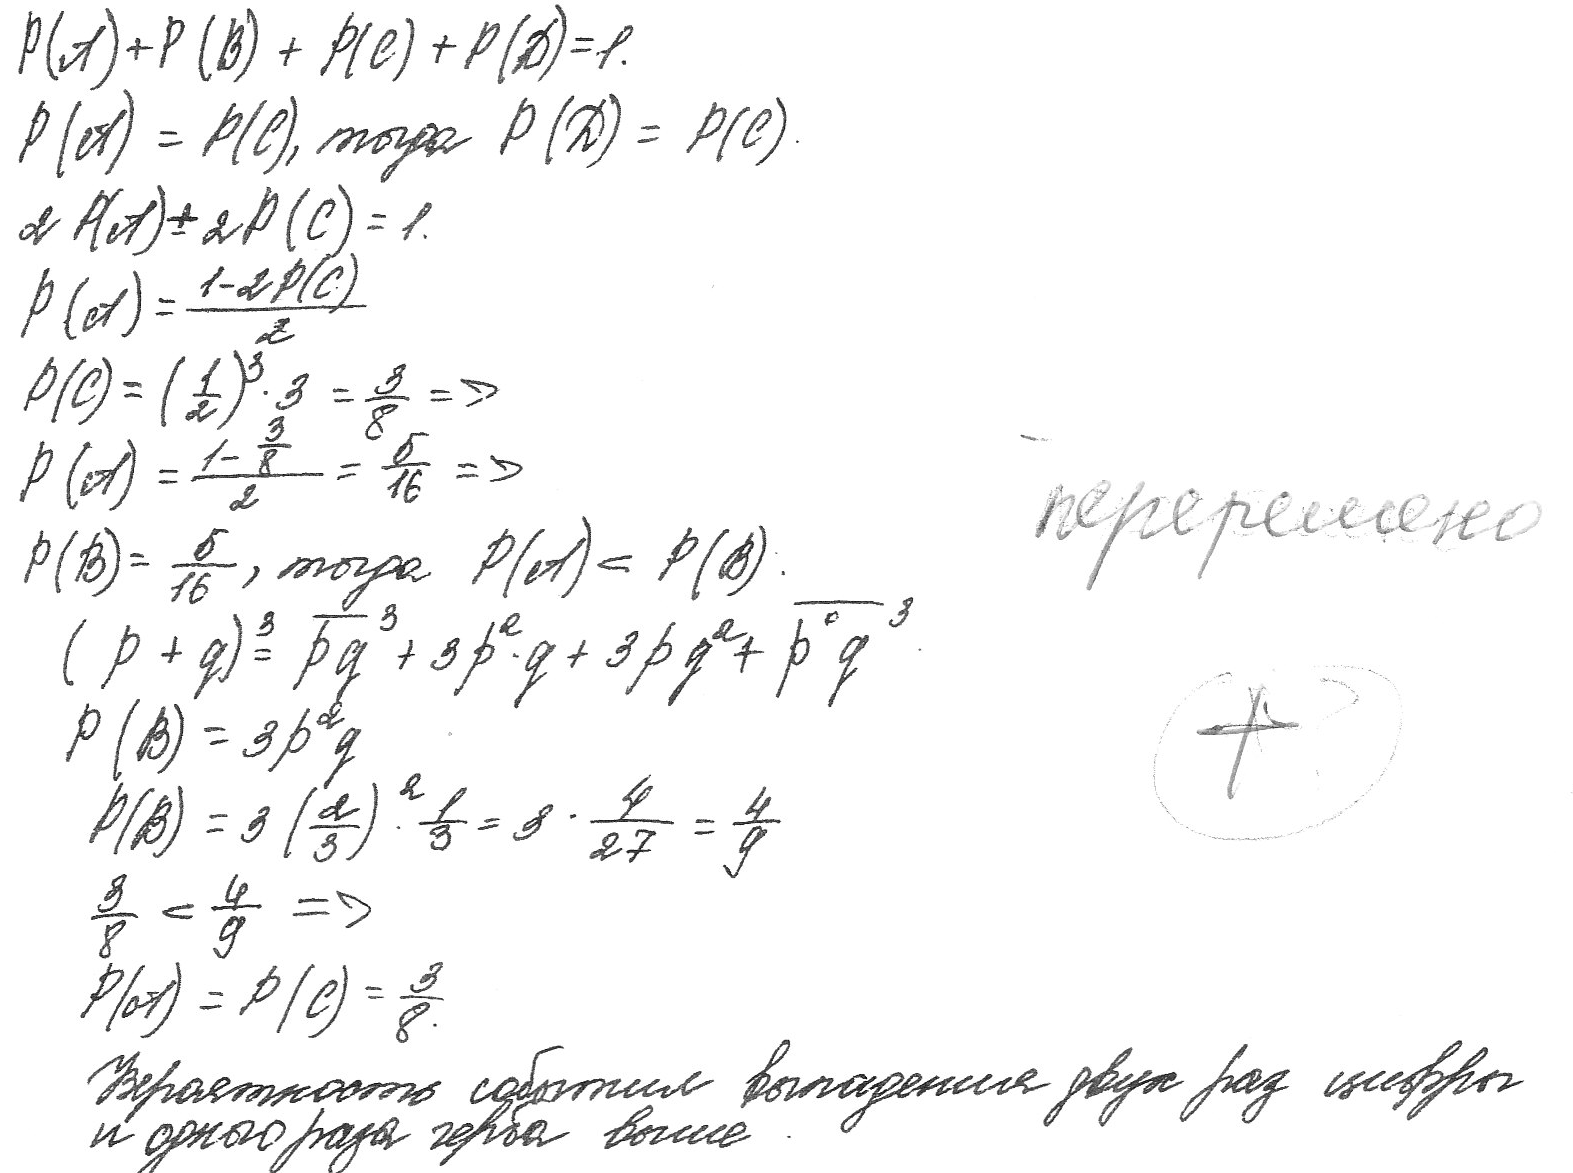 P(A)+P(B)+P(C)+P(D)=1.
P(A)=P(C), тогда P(D)=P(C).
2P(A)+2P(C)=1.
P(A)=\frac{1-2P(C)}{2}
P(C)=(\frac{1}{2})^3·3=\frac{3}{8}=>
P(A)=\frac{1-\frac{3}{8}}{2}=\frac{5}{16}=>
P(B)=\frac{5}{16}, тогда P(A)=P(B).
(p+q)^3=\overline{pq}^3+3p^2·q+3pq^2+\overline{p^0q}^3
P(B)=3p^2q
P(B)=3(\frac{2}{3})^2·\frac{1}{3}=3·\frac{4}{27}=\frac{4}{9}
\frac{3}{8}<\frac{4}{9}=>
P(A)=P(C)=\frac{3}{8}.
Вероятность события выпадения двух раз цифры
и одного раза герба выше.
перерешено
+